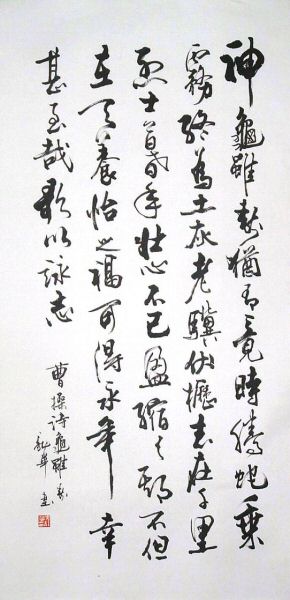 神龜雖壽猶有竟時騰蛇乘
霧終為土灰老驥伏櫪志在千里
烈士暮年壯心不已盈縮之期不但
在天養怡之福可得永年幸
甚至哉歌以詠志
曹操詩龜雖壽
華書